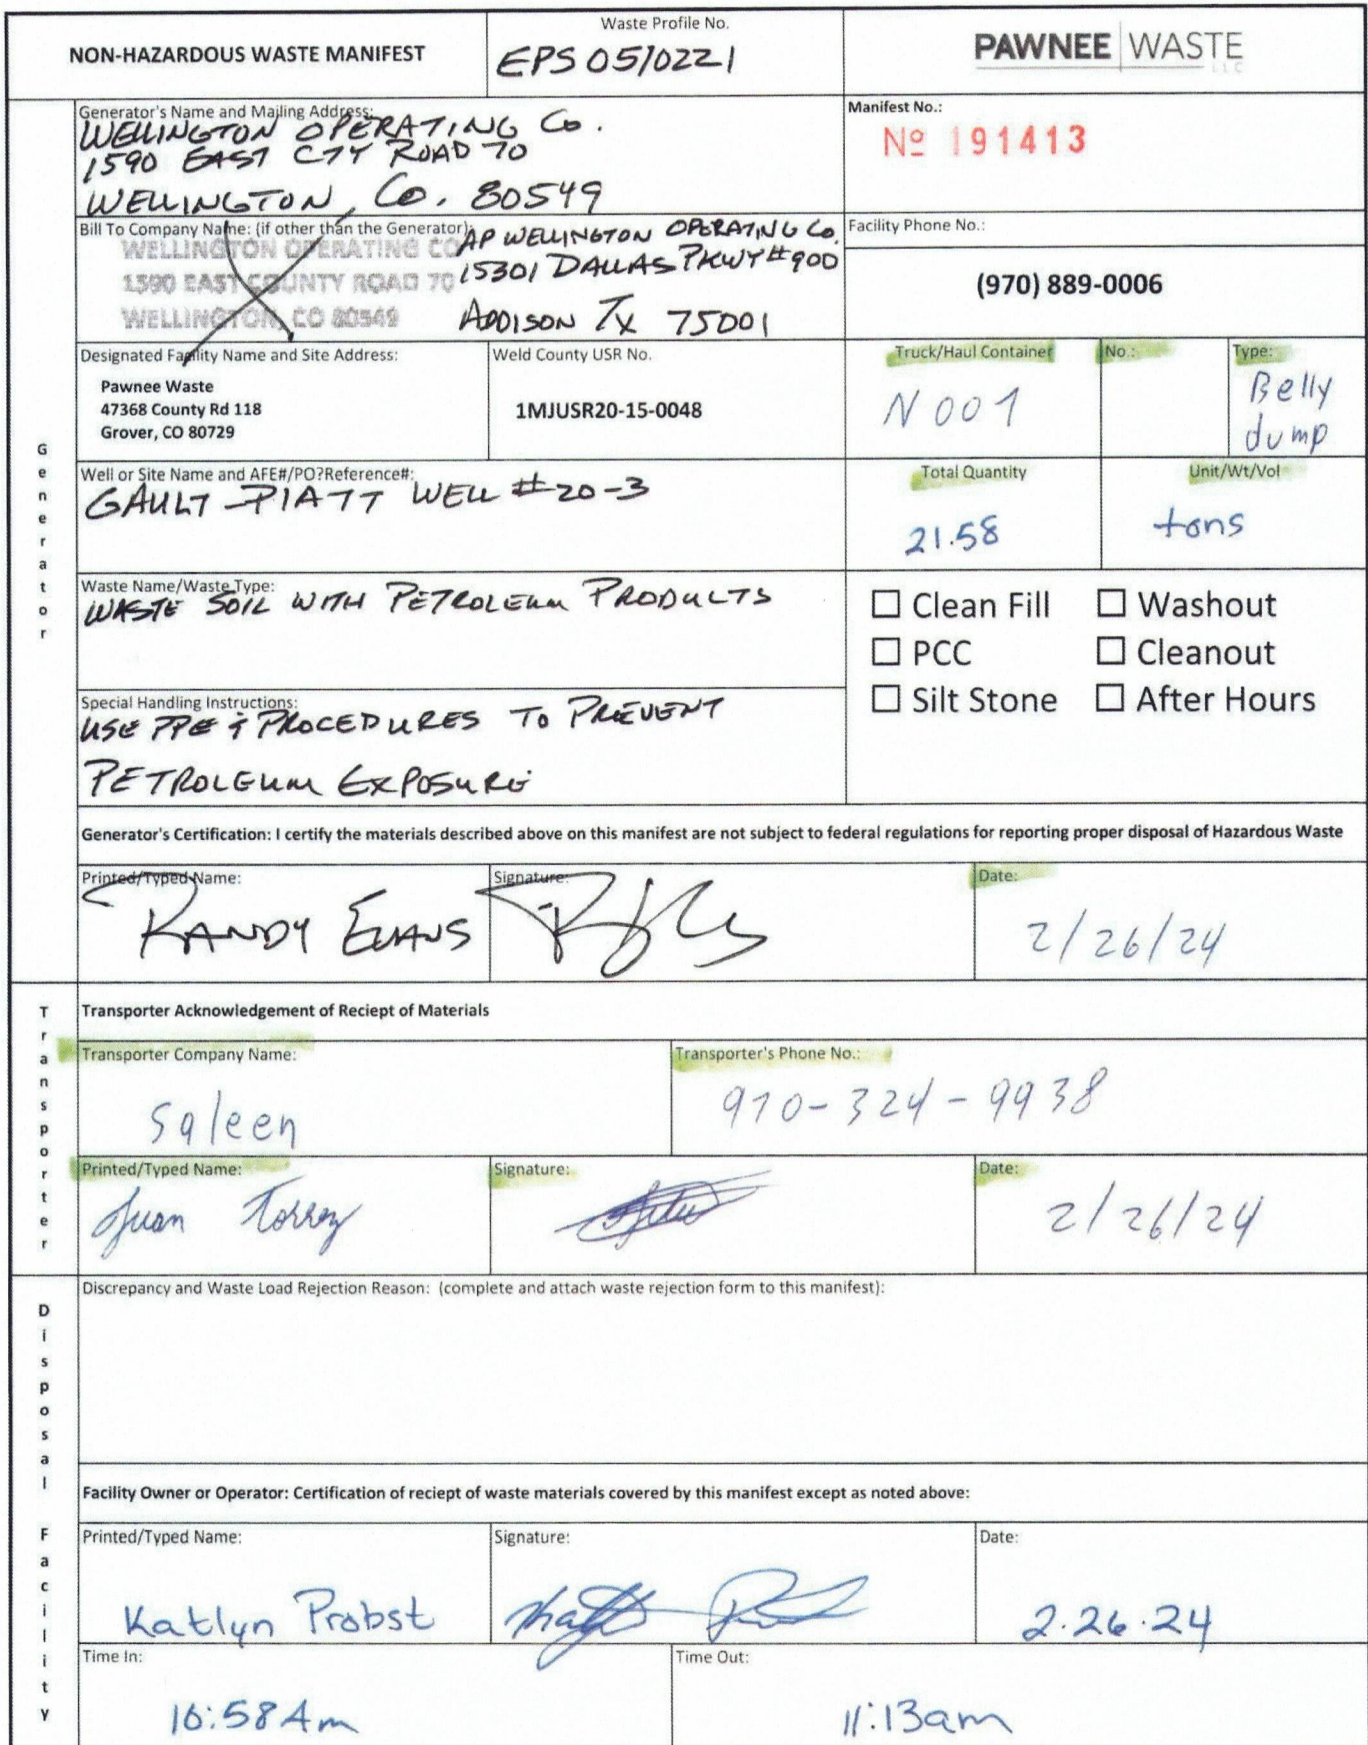 NON-HAZARDOUS WASTE MANIFEST
Waste Profile No.
EPS 05/0221
PAWNEE | WASTE
LLC
Generator's Name and Mailing Address:
WELLINGTON OPERATING CO.
1590 EAST CTY ROAD 70
WELLINGTON, CO. 80549
Manifest No.:
Nº 191413
Bill To Company Name: (if other than the Generator):
WELLINGTON OPERATING CO
1590 EAST COUNTY ROAD 70
WELLINGTON, CO 80549
AP WELLINGTON OPERATING CO.
15301 DALLAS PKWY #900
ADDISON TX 75001
Facility Phone No.:
(970) 889-0006
Designated Facility Name and Site Address:
Pawnee Waste
47368 County Rd 118
Grover, CO 80729
Weld County USR No.
1MJUSR20-15-0048
Truck/Haul Container
N001
No.:
Type:
Belly
dump
Well or Site Name and AFE#/PO?Reference#:
GAULT-PIATT WELL #20-3
Total Quantity
21.58
Unit/Wt/Vol
tons
Waste Name/Waste Type:
WASTE SOIL WITH PETROLEUM PRODUCTS
☐ Clean Fill ☐ Washout
☐ PCC ☐ Cleanout
☐ Silt Stone ☐ After Hours
Special Handling Instructions:
USE PPE & PROCEDURES TO PREVENT
PETROLEUM EXPOSURE
Generator's Certification: I certify the materials described above on this manifest are not subject to federal regulations for reporting proper disposal of Hazardous Waste
Printed/Typed Name:
RANDY EVANS
Signature:
Date:
2/26/24
Generator
Transporter Acknowledgement of Reciept of Materials
Transporter Company Name:
Saleen
Transporter's Phone No.:
970-324-9938
Printed/Typed Name:
Juan Torrez
Signature:
Date:
2/26/24
Transporter
Discrepancy and Waste Load Rejection Reason: (complete and attach waste rejection form to this manifest):
Facility Owner or Operator: Certification of reciept of waste materials covered by this manifest except as noted above:
Printed/Typed Name:
Katlyn Probst
Signature:
Date:
2.26.24
Time In:
10:58 Am
Time Out:
11:13am
Disposal Facility